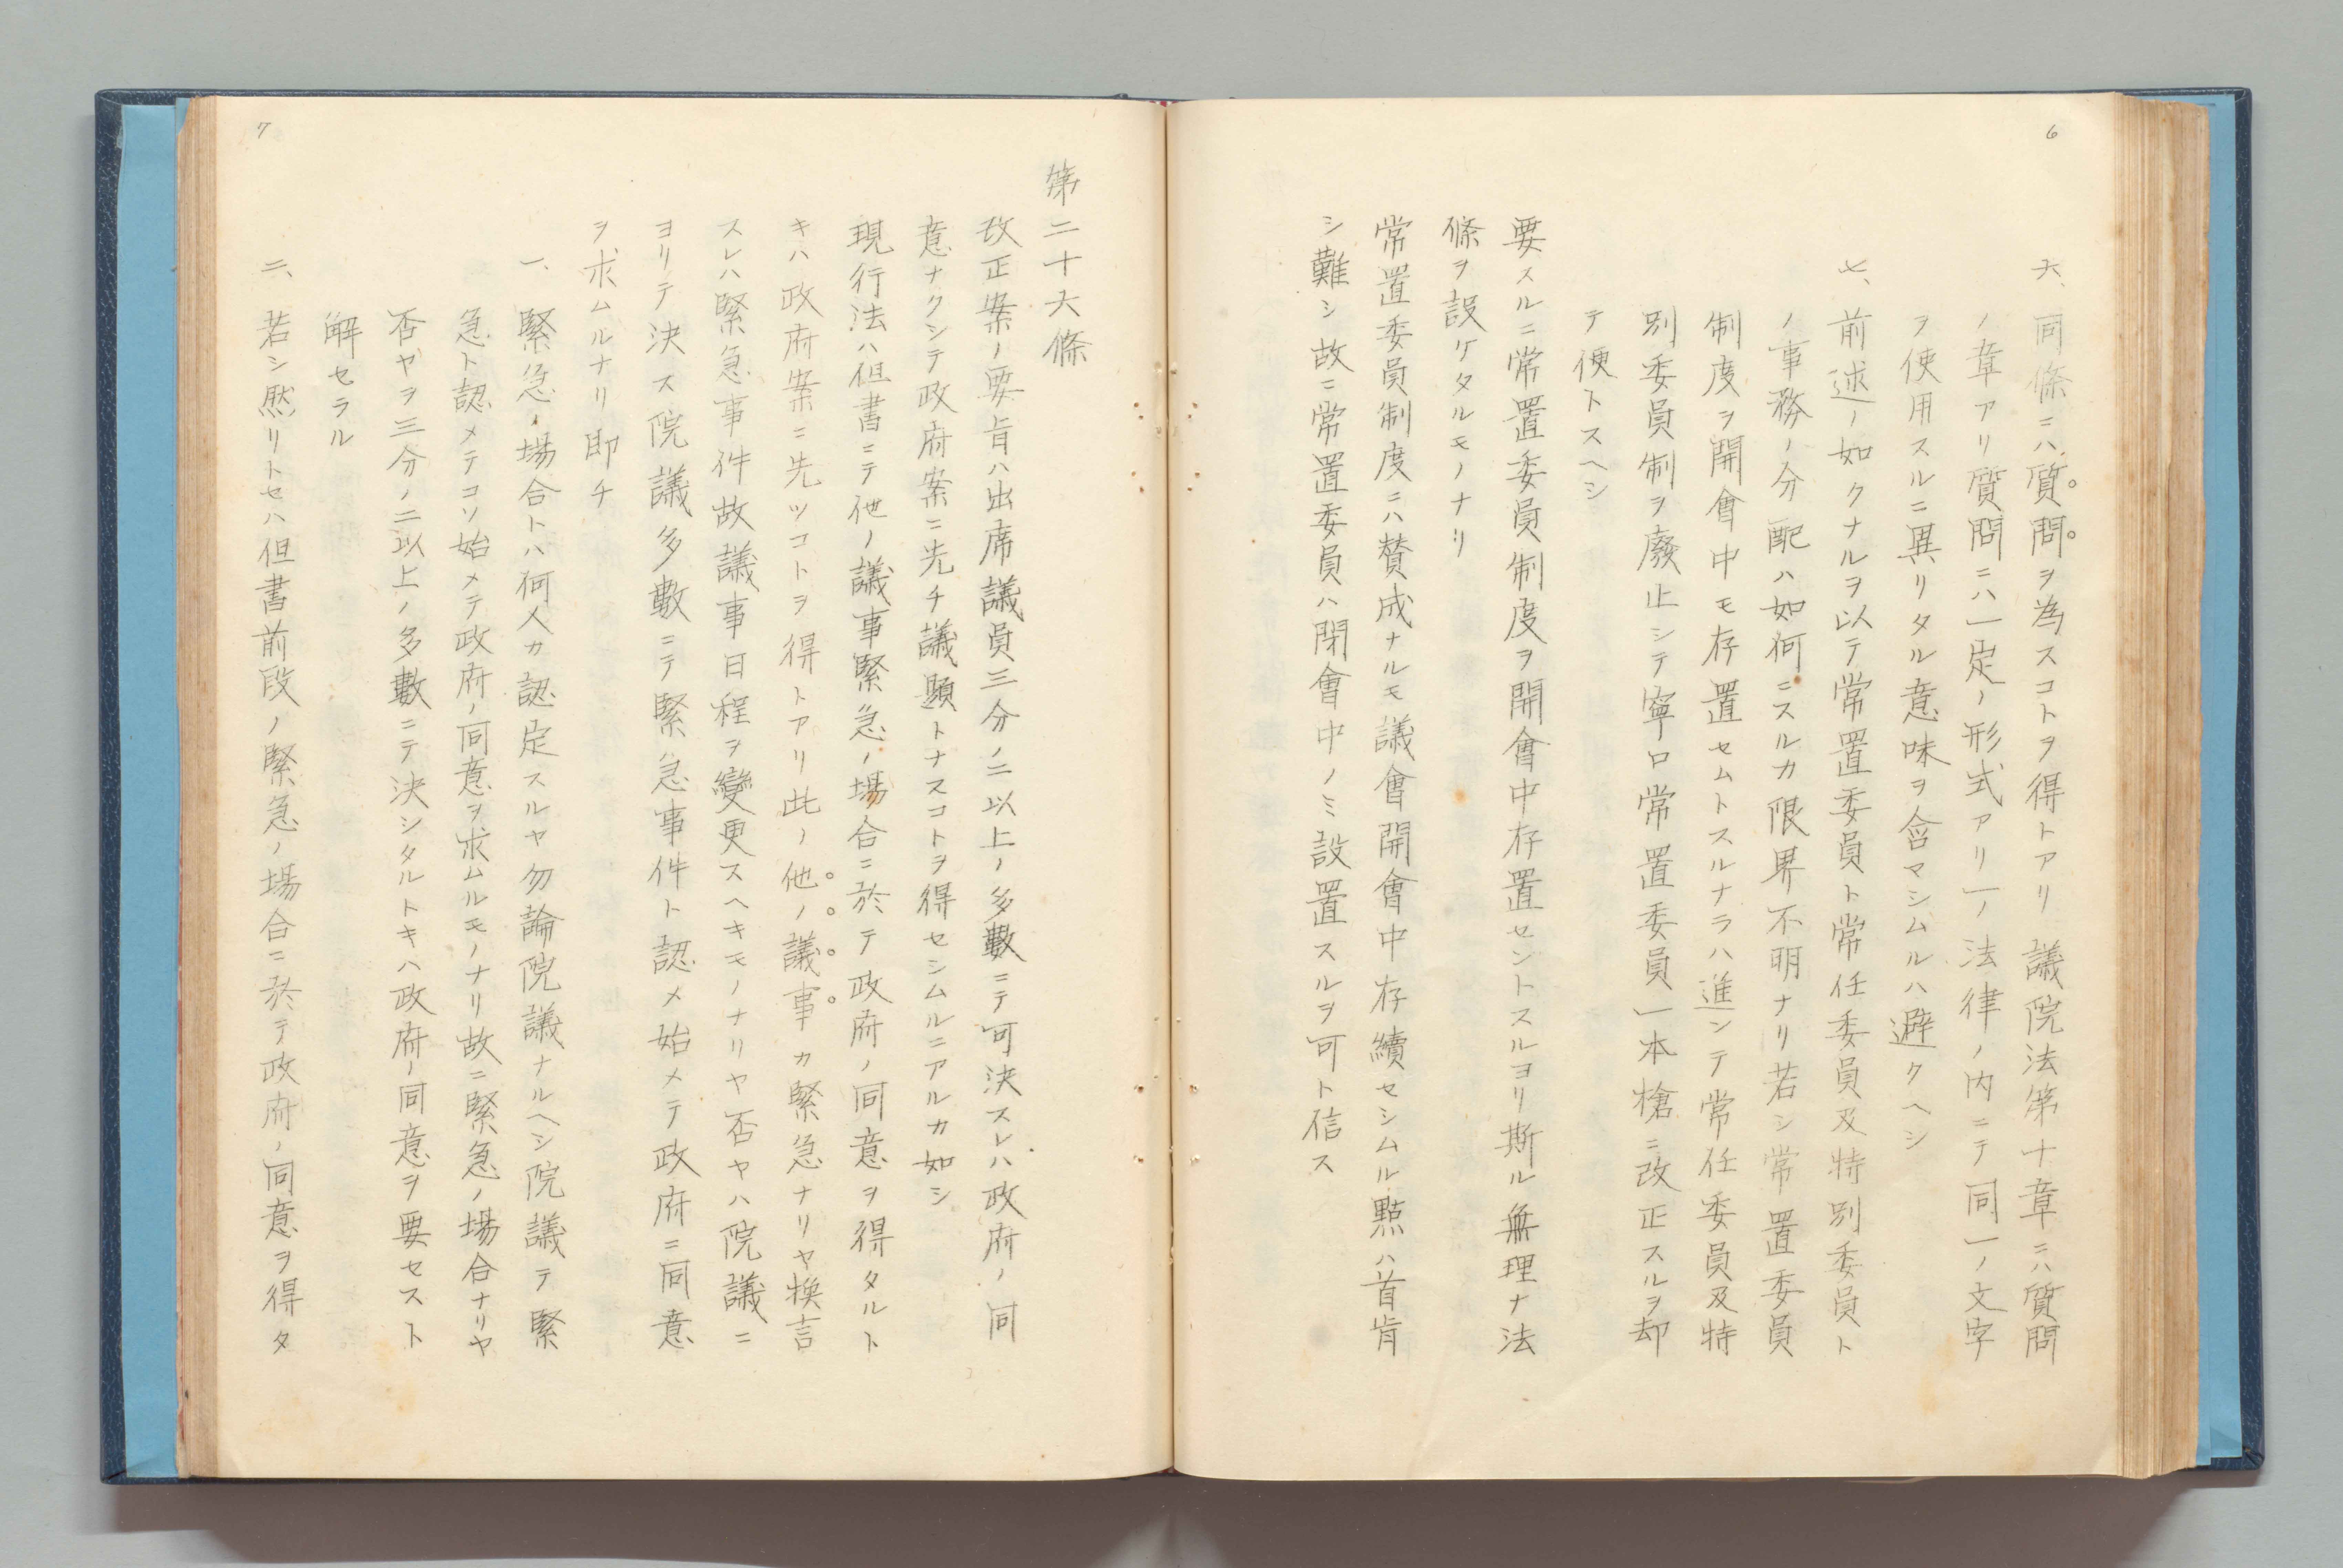 6
六、同條ニハ質問ヲ為スコトヲ得トアリ 議院法第十章ニハ質問
ノ章アリ質問ニハ一定ノ形式アリ一ノ法律ノ内ニテ同一ノ文字
ヲ使用スルニ異リタル意味ヲ含マシムルハ避クヘシ
七、前述ノ如クナルヲ以テ常置委員ト常任委員及特別委員ト
ノ事務ノ分配ハ如何ニスルカ限界不明ナリ若シ常置委員
制度ヲ開會中モ存置セムトスルナラハ進ンテ常任委員及特
別委員制ヲ廢止シテ寧ロ常置委員一本槍ニ改正スルヲ却
テ便トスヘシ
要スルニ常置委員制度ヲ開會中存置セントスルヨリ斯ル無理ナ法
條ヲ設ケタルモノナリ
常置委員制度ニハ賛成ナルモ議會開會中存續セシムル點ハ首肯
シ難シ故ニ常置委員ハ閉會中ノミ設置スルヲ可ト信ス
7
第二十六條
改正案ノ要旨ハ出席議員三分ノ二以上ノ多數ニテ可決スレハ政府ノ同
意ナクシテ政府案ニ先チ議題トナスコトヲ得センムルニアルカ如シ
現行法ハ但書ニテ他ノ議事緊急ノ場合ニ於テ政府ノ同意ヲ得タルト
キハ政府案ニ先ツコトヲ得トアリ此ノ他ノ議事カ緊急ナリヤ換言
スレハ緊急事件故議事日程ヲ變更スヘキモノナリヤ否ヤハ院議ニ
ヨリテ決ス院議多數ニテ緊急事件ト認メ始メテ政府ニ同意
ヲ求ムルナリ即チ
一、緊急ノ場合トハ何人カ認定スルヤ勿論院議ナルヘシ院議テ緊
急ト認メテコソ始メテ政府ノ同意ヲ求ムルモノナリ故ニ緊急ノ場合ナリヤ
否ヤヲ三分ノ二以上ノ多數ニテ決シタルトキハ政府ノ同意ヲ要セスト
解セラル
二、若シ然リトセハ但書前段ノ緊急ノ場合ニ於テ政府ノ同意ヲ得タ